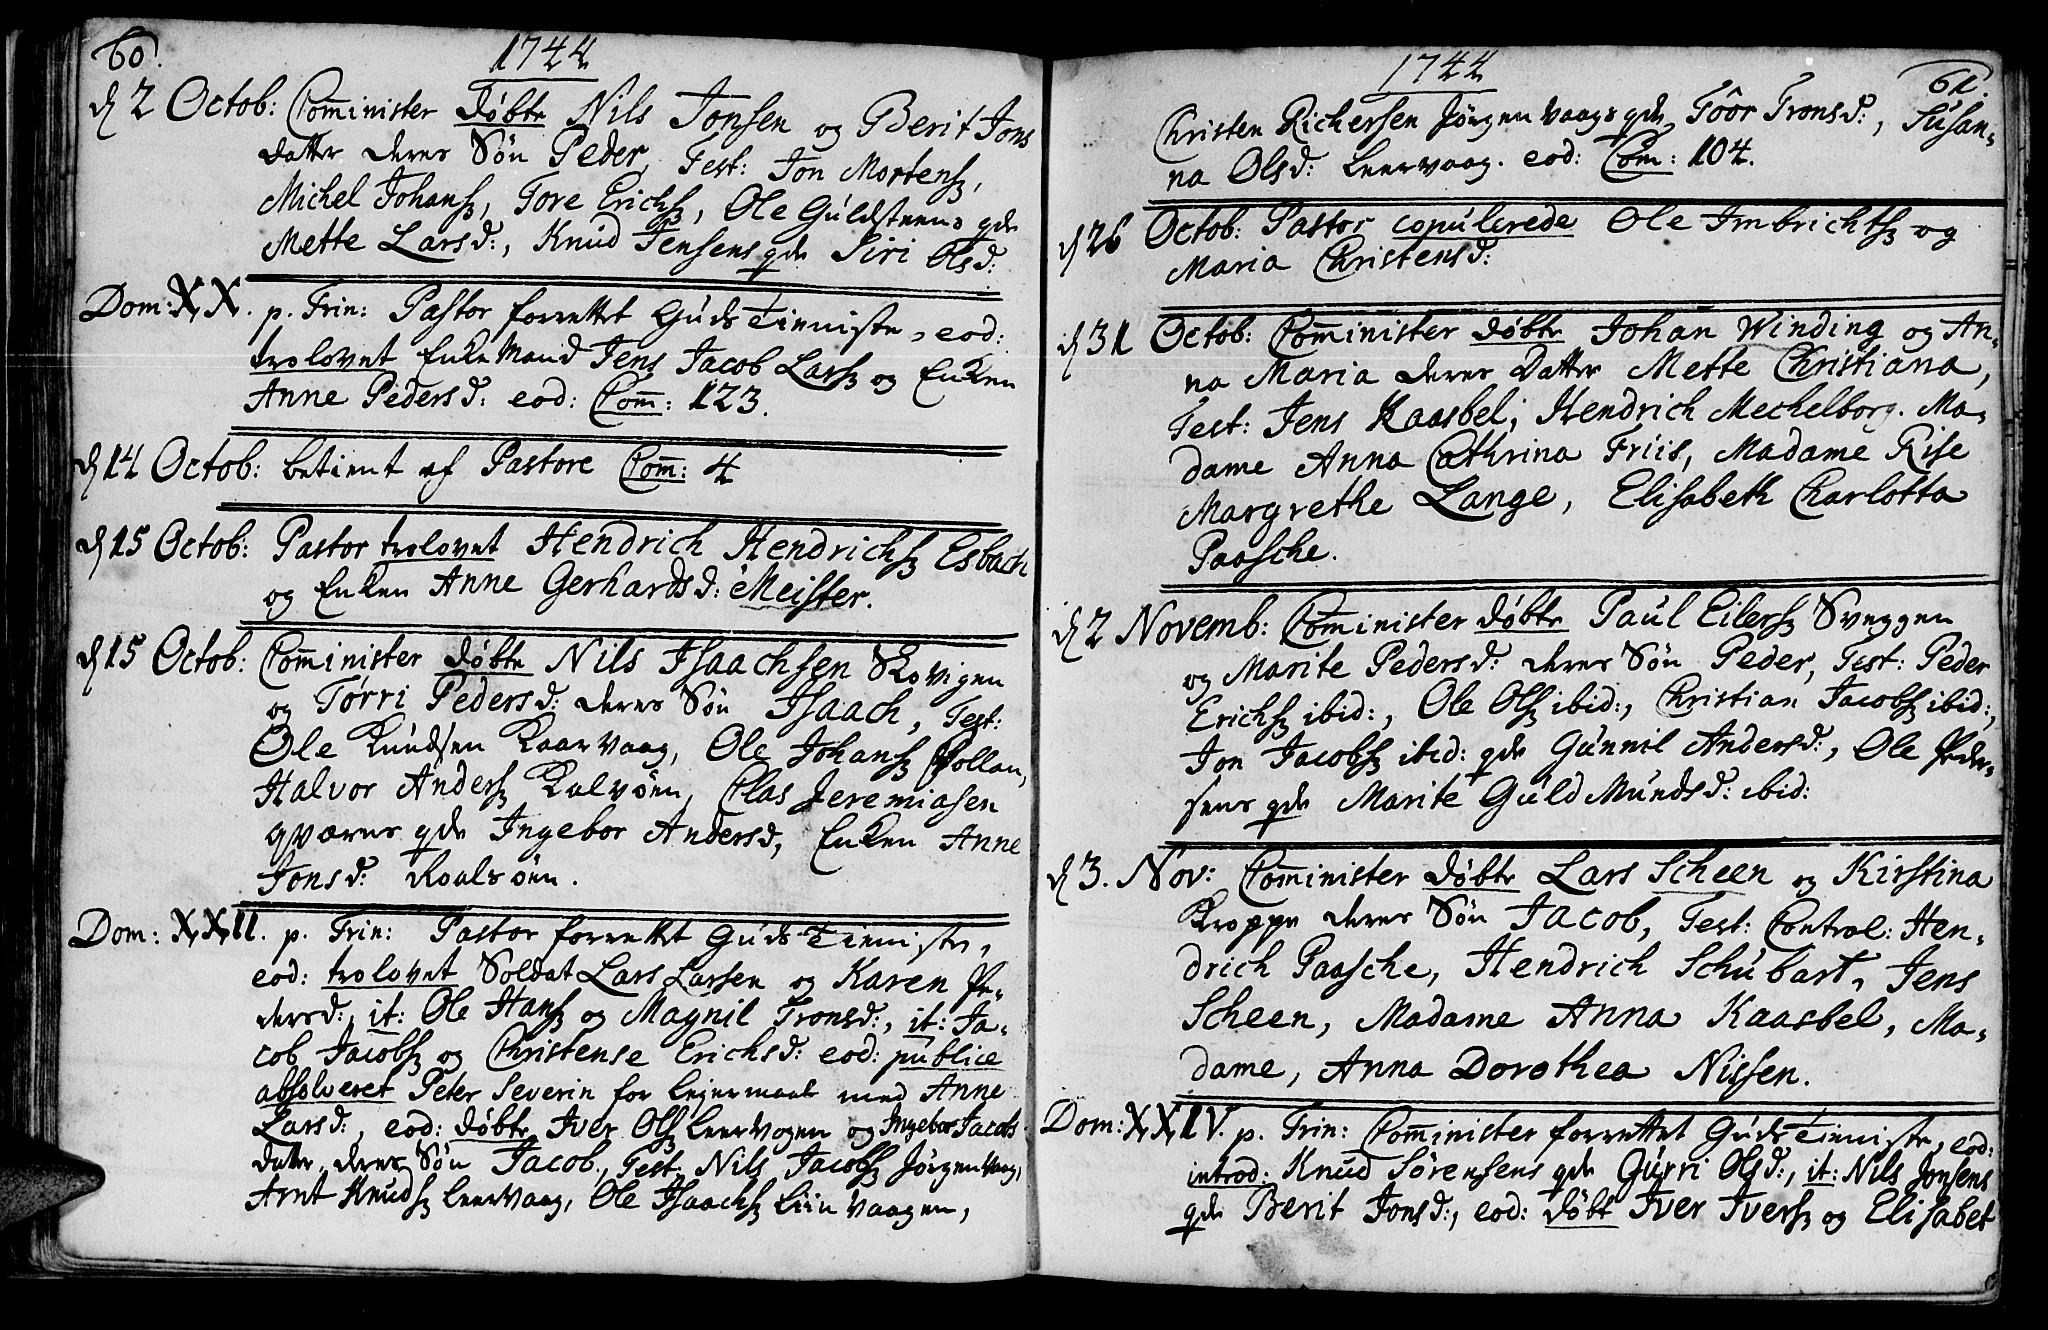 60.
1744
d 2 Octob: Com̄inister døbte Nils Jonsen og Berit Jons
datter deres Søn Peder, Test: Jon Mortens,
Michel Johans, Tore Erichs, Ole Guldsteens qde
Mette Larsd:, Knud Jensens qde Siri Olsd:
Dom: XX. p. Trin: Pastor forrettet Guds Tienniste, eod:
trolovet Enke Mand Jens Jacob Lars og Enken
Anne Pedersd: eod: Com̄: 123.
d 14 Octob: betient af Pastore Com̄: 4
d 15 Octob: Pastor trolovet Hendrich Hendrichs Esbach
og Enken Anne Gerhardsd: Meister.
d 15 Octob: Com̄inister døbte Nils Isaachsen Skovigen
og Tørri Pedersd: deres Søn Isaach, Test:
Ole Knudsen Kaarvaag, Ole Johans Hollan,
Halvor Anders Kalvøen, Clas Jeremiasen
qværnes qde Ingebor Andersd, Enken Anne
Jonsd: Roalsøen.
Dom: XXII. p. Trin: Pastor forrettet Guds Tienniste,
eod: trolovet Soldat Lars Larsen og Karen Pe-
dersd:, it: Ole Hans og Magnil Tronsd:, it: Ja-
cob Jacobs og Christense Erichsd: eod: publice
absolveret Peter Severin for leiermaal med Anne
Larsd:, eod: døbte Iver Ols Leervogen og Ingebor Jacobs
datter, deres Søn Jacob, Test: Nils Jacobs Jørgenvaag,
Arnt Knuds Leervaag, Ole Isaachs Liinvaagen,
61.
1744
Christen Richersen Jørgenvaags qde Toor Tronsd:, Susan-
na Olsd: Leervaag. eod: Com: 104.
d 26 Octob: Pastor copulerede Ole Imbrichts og
Maria Christensd:
d 31 Octob: Com̄inister døbte Johan Winding og An-
na Maria deres Datter Mette Christiana,
Test: Jens Kaasbel, Hendrich Mechelborg. Ma-
dame Anna Cathrina Friis, Madame Rise
Margrethe Lange, Elisabeth Charlotta
Paasche.
d 2 Novemb: Com̄inister døbte Paul Eilers Sveggen
og Marite Pedersd: deres Søn Peder, Test: Peder
Erichs ibid:, Ole Ols ibid:, Christian Jacobs ibid:,
Jon Jacobs ibid: qde Gunnil Andersd:, Ole Peder-
sens qde Marite GuldMundsd: ibid:
d 3. Nov: Com̄inister døbte Lars Scheen og Kirstina
Kroppe deres Søn Jacob, Test: Control: Hen-
drich Paasche, Hendrich Schubart, Jens
Scheen, Madame Anna Kaasbel, Ma-
dame, Anna Dorothea Nissen.
Dom: XXIV. p. Trin: Com̄inister forrettet Guds Tienniste, eod:
introd: Knud Sørensens qde Gurri Olsd:, it: Nils Jonsens
qde Berit Jonsd:, eod: døbt Iver Ivers og Elisabet